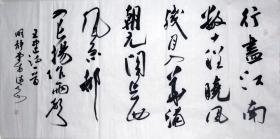 行盡江南
數十程曉風
殘月入華清
朝元閣上西
風急都
入長楊作雨聲
王建詩一首
明靜堂